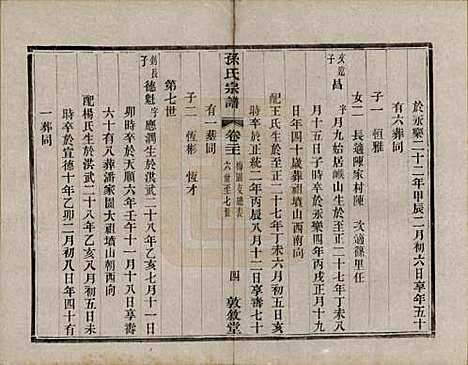 於永樂二十二年甲辰二月初六日享年五十
有六葬同
子一 恒雅
女二 長適陳家村陳 次適篠里任
文達子 昌 字月九始居嶔山生於至正二十七年丁未八
月十五日子時卒於永樂四年丙戌正月十九
日年四十歲葬祖墳山西南向
配王氏生於至正二十七年丁未六月初五日亥
時卒於正統二年丙辰八月十二日享壽七十
有一葬同
子二 恒彬 恒才
孫氏宗譜
卷三十
梅園支總表
六世至七世
四
敦敘堂
第七世
剑長子 德魁 字應潤生於洪武二十八年乙亥五月十一日
卯時卒於天順六年壬午十一月十八日享壽
六十有八葬潘家園大祖墳山朝西向
配楊氏生於洪武二十八年乙亥八月初五日未
時卒於宣德十年乙卯二月初八日年四十有
一葬同